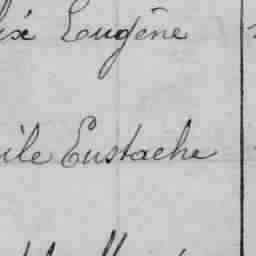 ix Eugène
ile Eustache